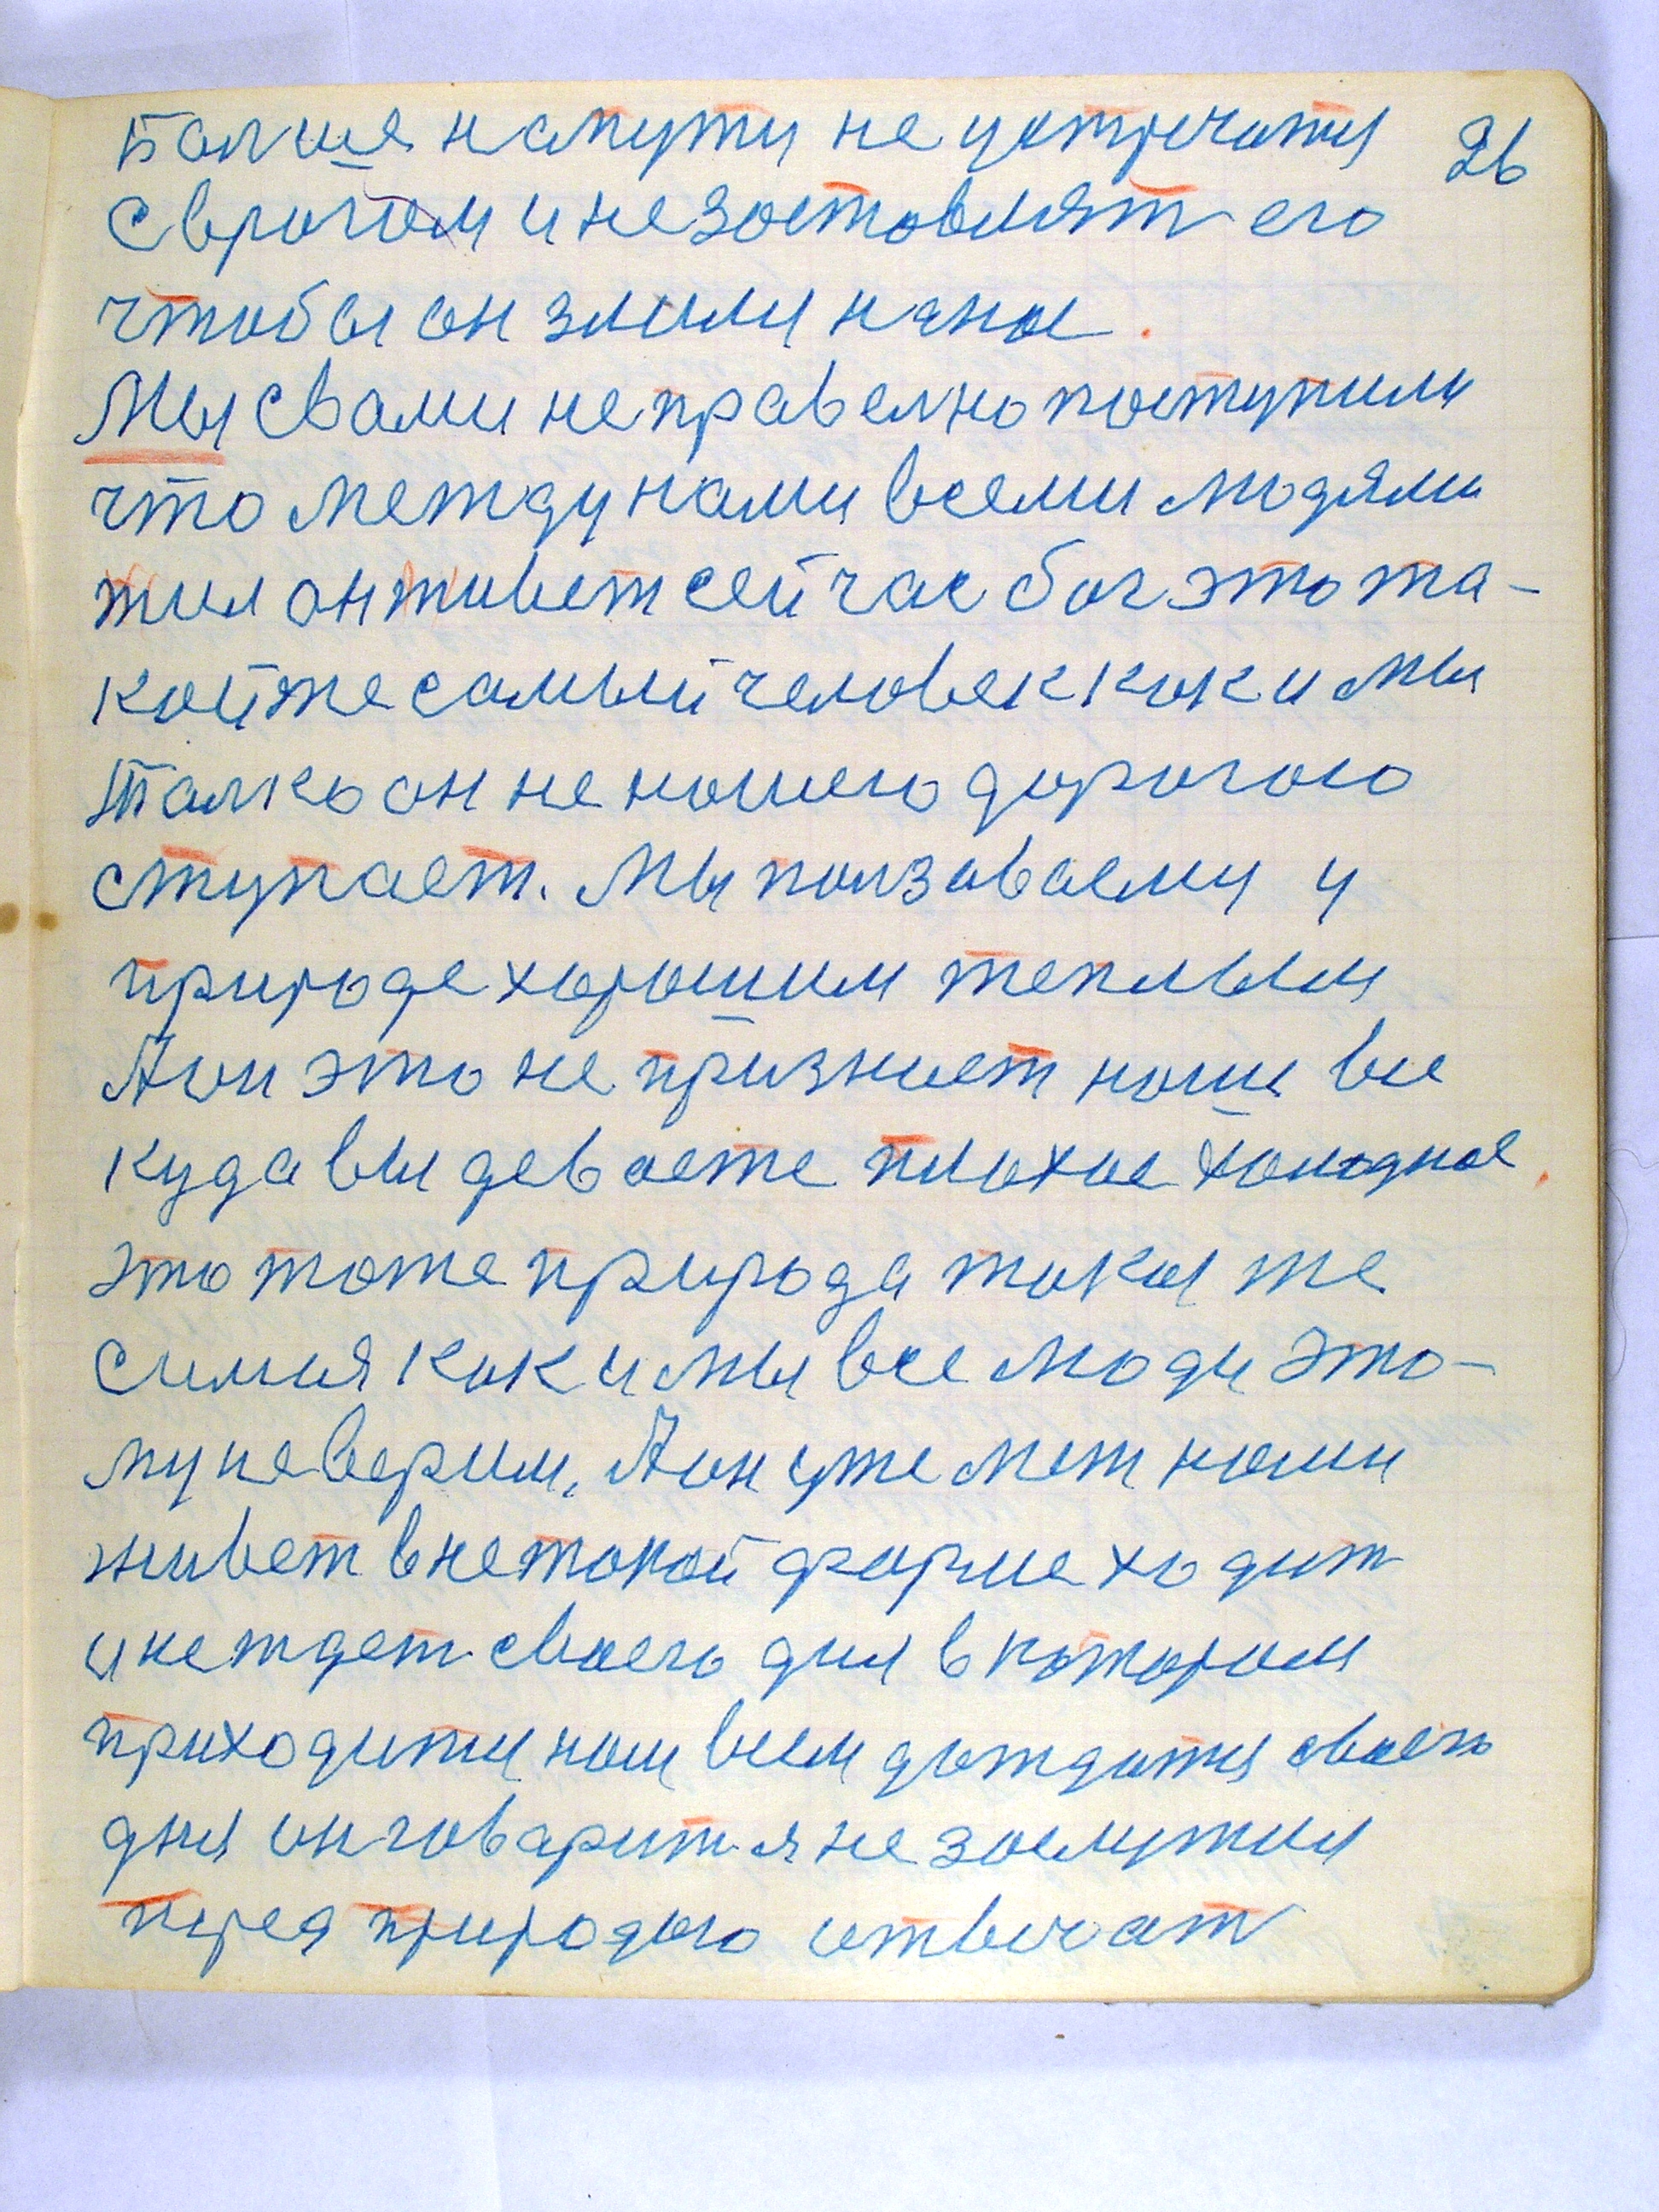 Балше напути не устречатся 26
Сврогом и незаставлят его
чтобы он злился нанас.
Мы свами не правелно поступили
что между нами всеми людями
жил он живет сейчас бог это та-
койже самый человек как и мы
Толко он не нашею дорогою
ступает. Мы ползоваемся у
природе хорошим теплым
Аон это не признает нам все
куда вы деваете плохое холодное.
это тоже природа такая же
самая как и мы все люди это-
му неверим. Аон уже меж нами
живет внетакой форме ходит
и не ждет своего дня вкотором
приходится нам всем дождатся своего
дня он говарит я не заслужил
перед природою отвечат